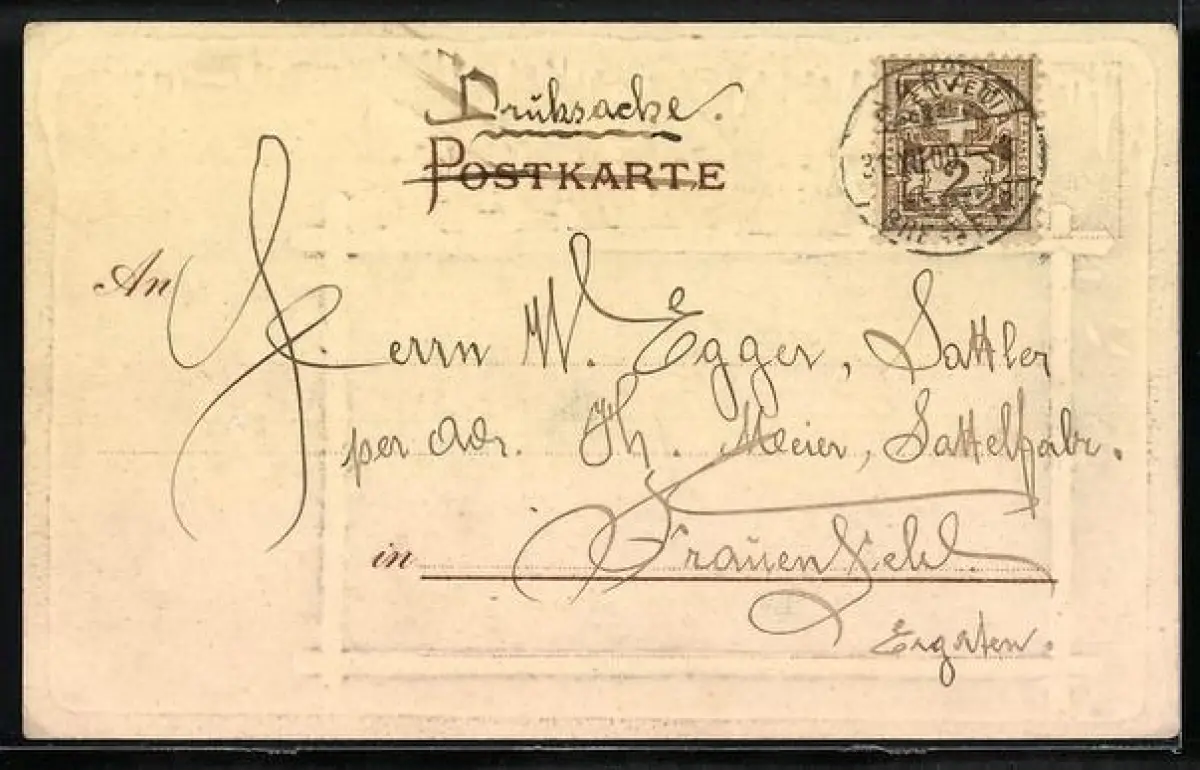 Drucksache.
POSTKARTE
2
An
Herrn W. Egger, Sattler
per Adr. Th. Meier, Sattelfabr.
in Frauenfeld.
Ergaten.